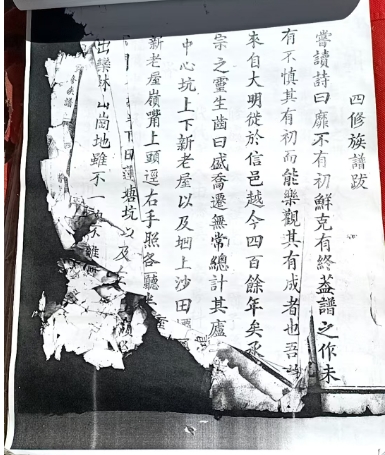 四修族譜跋
嘗讀詩曰靡不有初鮮克有終葢譜之作未
有不慎其有初而能樂觀其有成者也吾
來自大明徙於信邑越今四百餘年矣承
宗之靈生齒曰盛喬遷無常總計其廬
中心坑上下新老屋以及㘭上沙田
新老屋嶺嘴上頭逕右手照各聽
下田蓮塘坑以及
出欒林山崗地雖不一
族譜